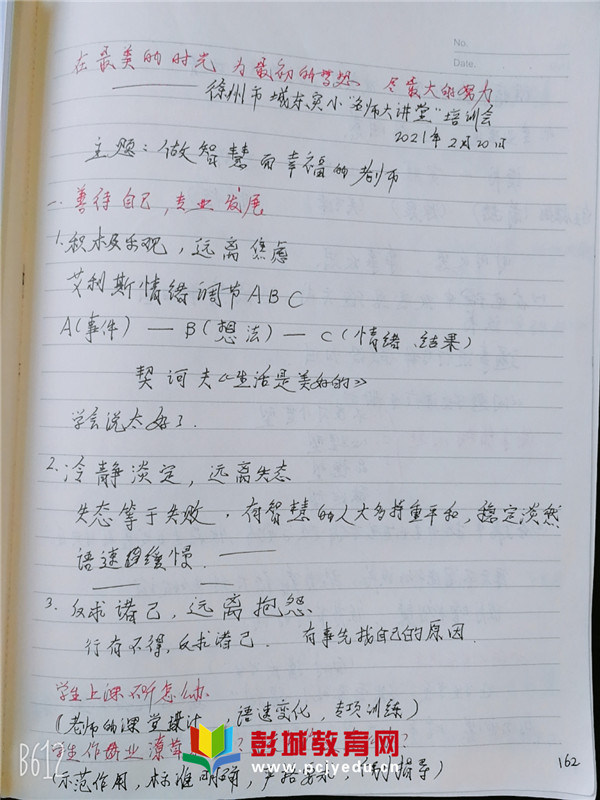 No.
Date.
在最美的时光 为最初的梦想、尽最大的努力
———徐州市城东实小"名师大讲堂"培训会
2021年2月20日
主题：做智慧而幸福的老师
一、善待自己，专业发展
1.积木及乐观，远离焦虑
艾利斯情绪调节ABC
A（事件）— B（想法）— C（情绪、结果）
契诃夫《生活是美好的》
学会说太好了.
2.冷静淡定，远离失态
失态等于失败，有智慧的人大多持重平和，稳定淡然
语速缓慢.
3.反求诸己，远离抱怨
行有不得，反求诸己. 有事先找自己的原因.
学生上课不听怎么办
（老师的课堂设计，语速变化，专项训练）
学生作业潦草
（示范作用，标准明确，严格要求，
彭城教育网
www.pcjyedu.cn
B612
162